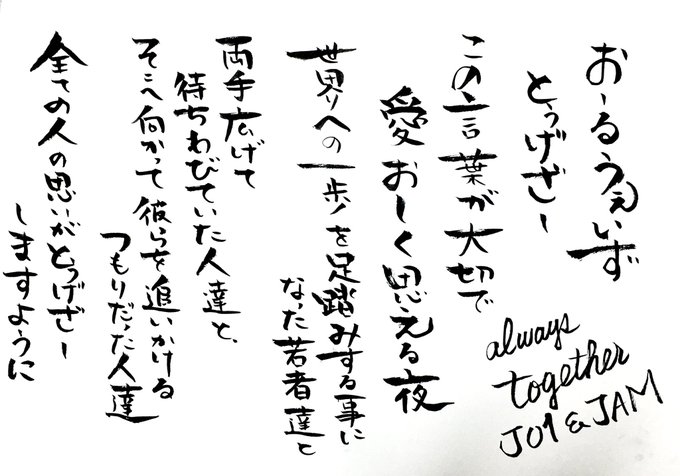 おーるうぇいず
とぅげざー
この言葉が大切で
愛おしく思える夜
世界への一歩を足踏みする事に
なった若者達と
両手広げて
待ちわびていた人達と、
そこへ向かって彼らを追いかける
つもりだった人達
全ての人の思いがとぅげざー
しますように
always
together
JO1 & JAM